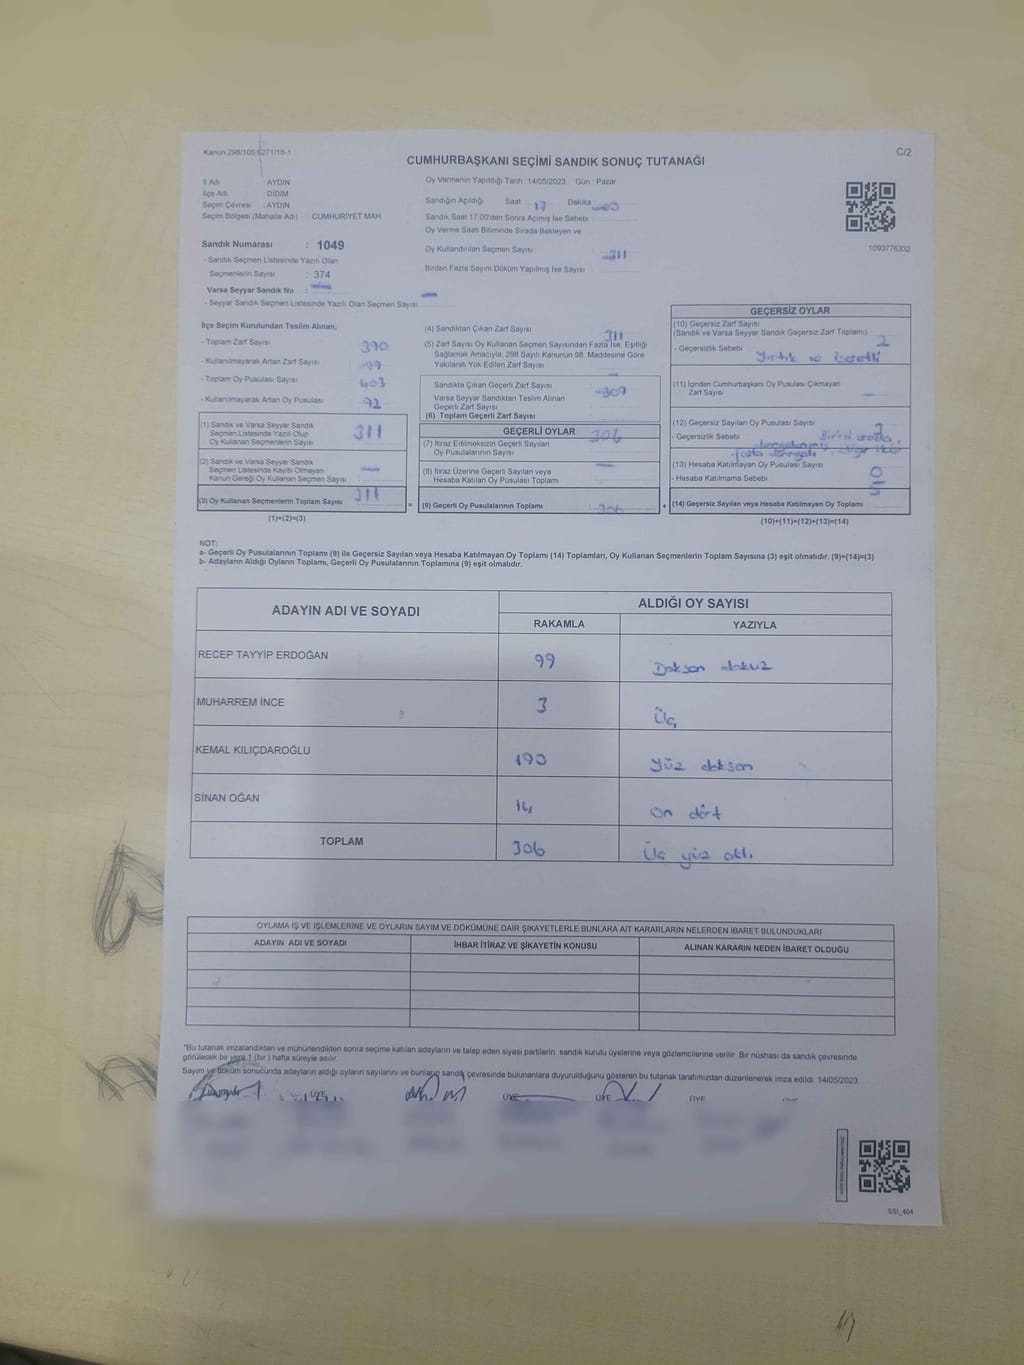 Kanun:298/105,6271/18-1
C/2
CUMHURBAŞKANI SEÇİMİ SANDIK SONUÇ TUTANAĞI
İl Adı : AYDIN
İlçe Adı : DİDİM
Seçim Çevresi : AYDIN
Seçim Bölgesi (Mahalle Adı) : CUMHURİYET MAH
Oy Vermenin Yapıldığı Tarih : 14/05/2023 Gün : Pazar
Sandığın Açıldığı Saat : 17 Dakika
Sandık Saat 17.00'den Sonra Açılmış İse Sebebi
Oy Verme Saati Bitiminde Sırada Bekleyen ve
Oy Kullandırılan Seçmen Sayısı 311
Birden Fazla Sayım Döküm Yapılmış İse Sayısı
1093776332
Sandık Numarası : 1049
- Sandık Seçmen Listesinde Yazılı Olan
Seçmenlerin Sayısı : 374
Varsa Seyyar Sandık No : —
- Seyyar Sandık Seçmen Listesinde Yazılı Olan Seçmen Sayısı : —
İlçe Seçim Kurulundan Teslim Alınan;
- Toplam Zarf Sayısı 390
- Kullanılmayarak Artan Zarf Sayısı
- Toplam Oy Pusulası Sayısı 403
- Kullanılmayarak Artan Oy Pusulası 92
(1) Sandık ve Varsa Seyyar Sandık
Seçmen Listesinde Yazılı Olup
Oy Kullanan Seçmenlerin Sayısı 311
(2) Sandık ve Varsa Seyyar Sandık
Seçmen Listesinde Kayıtlı Olmayan
Kanun Gereği Oy Kullanan Seçmen Sayısı —
(3) Oy Kullanan Seçmenlerin Toplam Sayısı 311
(1)+(2)=(3)
(4) Sandıktan Çıkan Zarf Sayısı 311
(5) Zarf Sayısı Oy Kullanan Seçmen Sayısından Fazla İse, Eşitliği
Sağlamak Amacıyla, 298 Sayılı Kanunun 98. Maddesine Göre
Yakılarak Yok Edilen Zarf Sayısı
Sandıkta Çıkan Geçerli Zarf Sayısı 309
Varsa Seyyar Sandıktan Teslim Alınan
Geçerli Zarf Sayısı
(6) Toplam Geçerli Zarf Sayısı
GEÇERLİ OYLAR
(7) İtiraz Edilmeksizin Geçerli Sayılan
Oy Pusulalarının Sayısı 306
(8) İtiraz Üzerine Geçerli Sayılan veya
Hesaba Katılan Oy Pusulası Toplamı —
= (9) Geçerli Oy Pusulalarının Toplamı 306
GEÇERSİZ OYLAR
(10) Geçersiz Zarf Sayısı
(Sandık ve Varsa Seyyar Sandık Geçersiz Zarf Toplamı) 2
- Geçersizlik Sebebi Yırtık ve işaretli
(11) İçinden Cumhurbaşkanı Oy Pusulası Çıkmayan
Zarf Sayısı —
(12) Geçersiz Sayılan Oy Pusulası Sayısı
- Geçersizlik Sebebi
(13) Hesaba Katılmayan Oy Pusulası Sayısı 0
- Hesaba Katılmama Sebebi
+ (14) Geçersiz Sayılan veya Hesaba Katılmayan Oy Toplamı 5
(10)+(11)+(12)+(13)=(14)
NOT:
a- Geçerli Oy Pusulalarının Toplamı (9) ile Geçersiz Sayılan veya Hesaba Katılmayan Oy Toplamı (14) Toplamları, Oy Kullanan Seçmenlerin Toplam Sayısına (3) eşit olmalıdır. (9)+(14)=(3)
b- Adayların Aldığı Oyların Toplamı, Geçerli Oy Pusulalarının Toplamına (9) eşit olmalıdır.
ADAYIN ADI VE SOYADI ALDIĞI OY SAYISI
RAKAMLA YAZIYLA
RECEP TAYYİP ERDOĞAN 99 Doksan dokuz
MUHARREM İNCE 3 Üç
KEMAL KILIÇDAROĞLU 190 Yüz doksan
SİNAN OĞAN 14 On dört
TOPLAM 306 Üç yüz altı
OYLAMA İŞ VE İŞLEMLERİNE VE OYLARIN SAYIM VE DÖKÜMÜNE DAİR ŞİKAYETLERLE BUNLARA AİT KARARLARIN NELERDEN İBARET BULUNDUKLARI
ADAYIN ADI VE SOYADI İHBAR İTİRAZ VE ŞİKAYETİN KONUSU ALINAN KARARIN NEDEN İBARET OLDUĞU
*Bu tutanak imzalandıktan ve mühürlendikten sonra seçime katılan adayların ve talep eden siyasi partilerin sandık kurulu üyelerine veya gözlemcilerine verilir. Bir nüshası da sandık çevresinde
görülecek bir yere 1 (bir ) hafta süreyle asılır.
Sayım ve döküm sonucunda adayların aldığı oyların sayılarını ve bunların sandık çevresinde bulunanlara duyurulduğunu gösteren bu tutanak tarafımızdan düzenlenerek imza edildi. 14/05/2023
ÜYE ÜYE ÜYE ÜYE
SSI_404